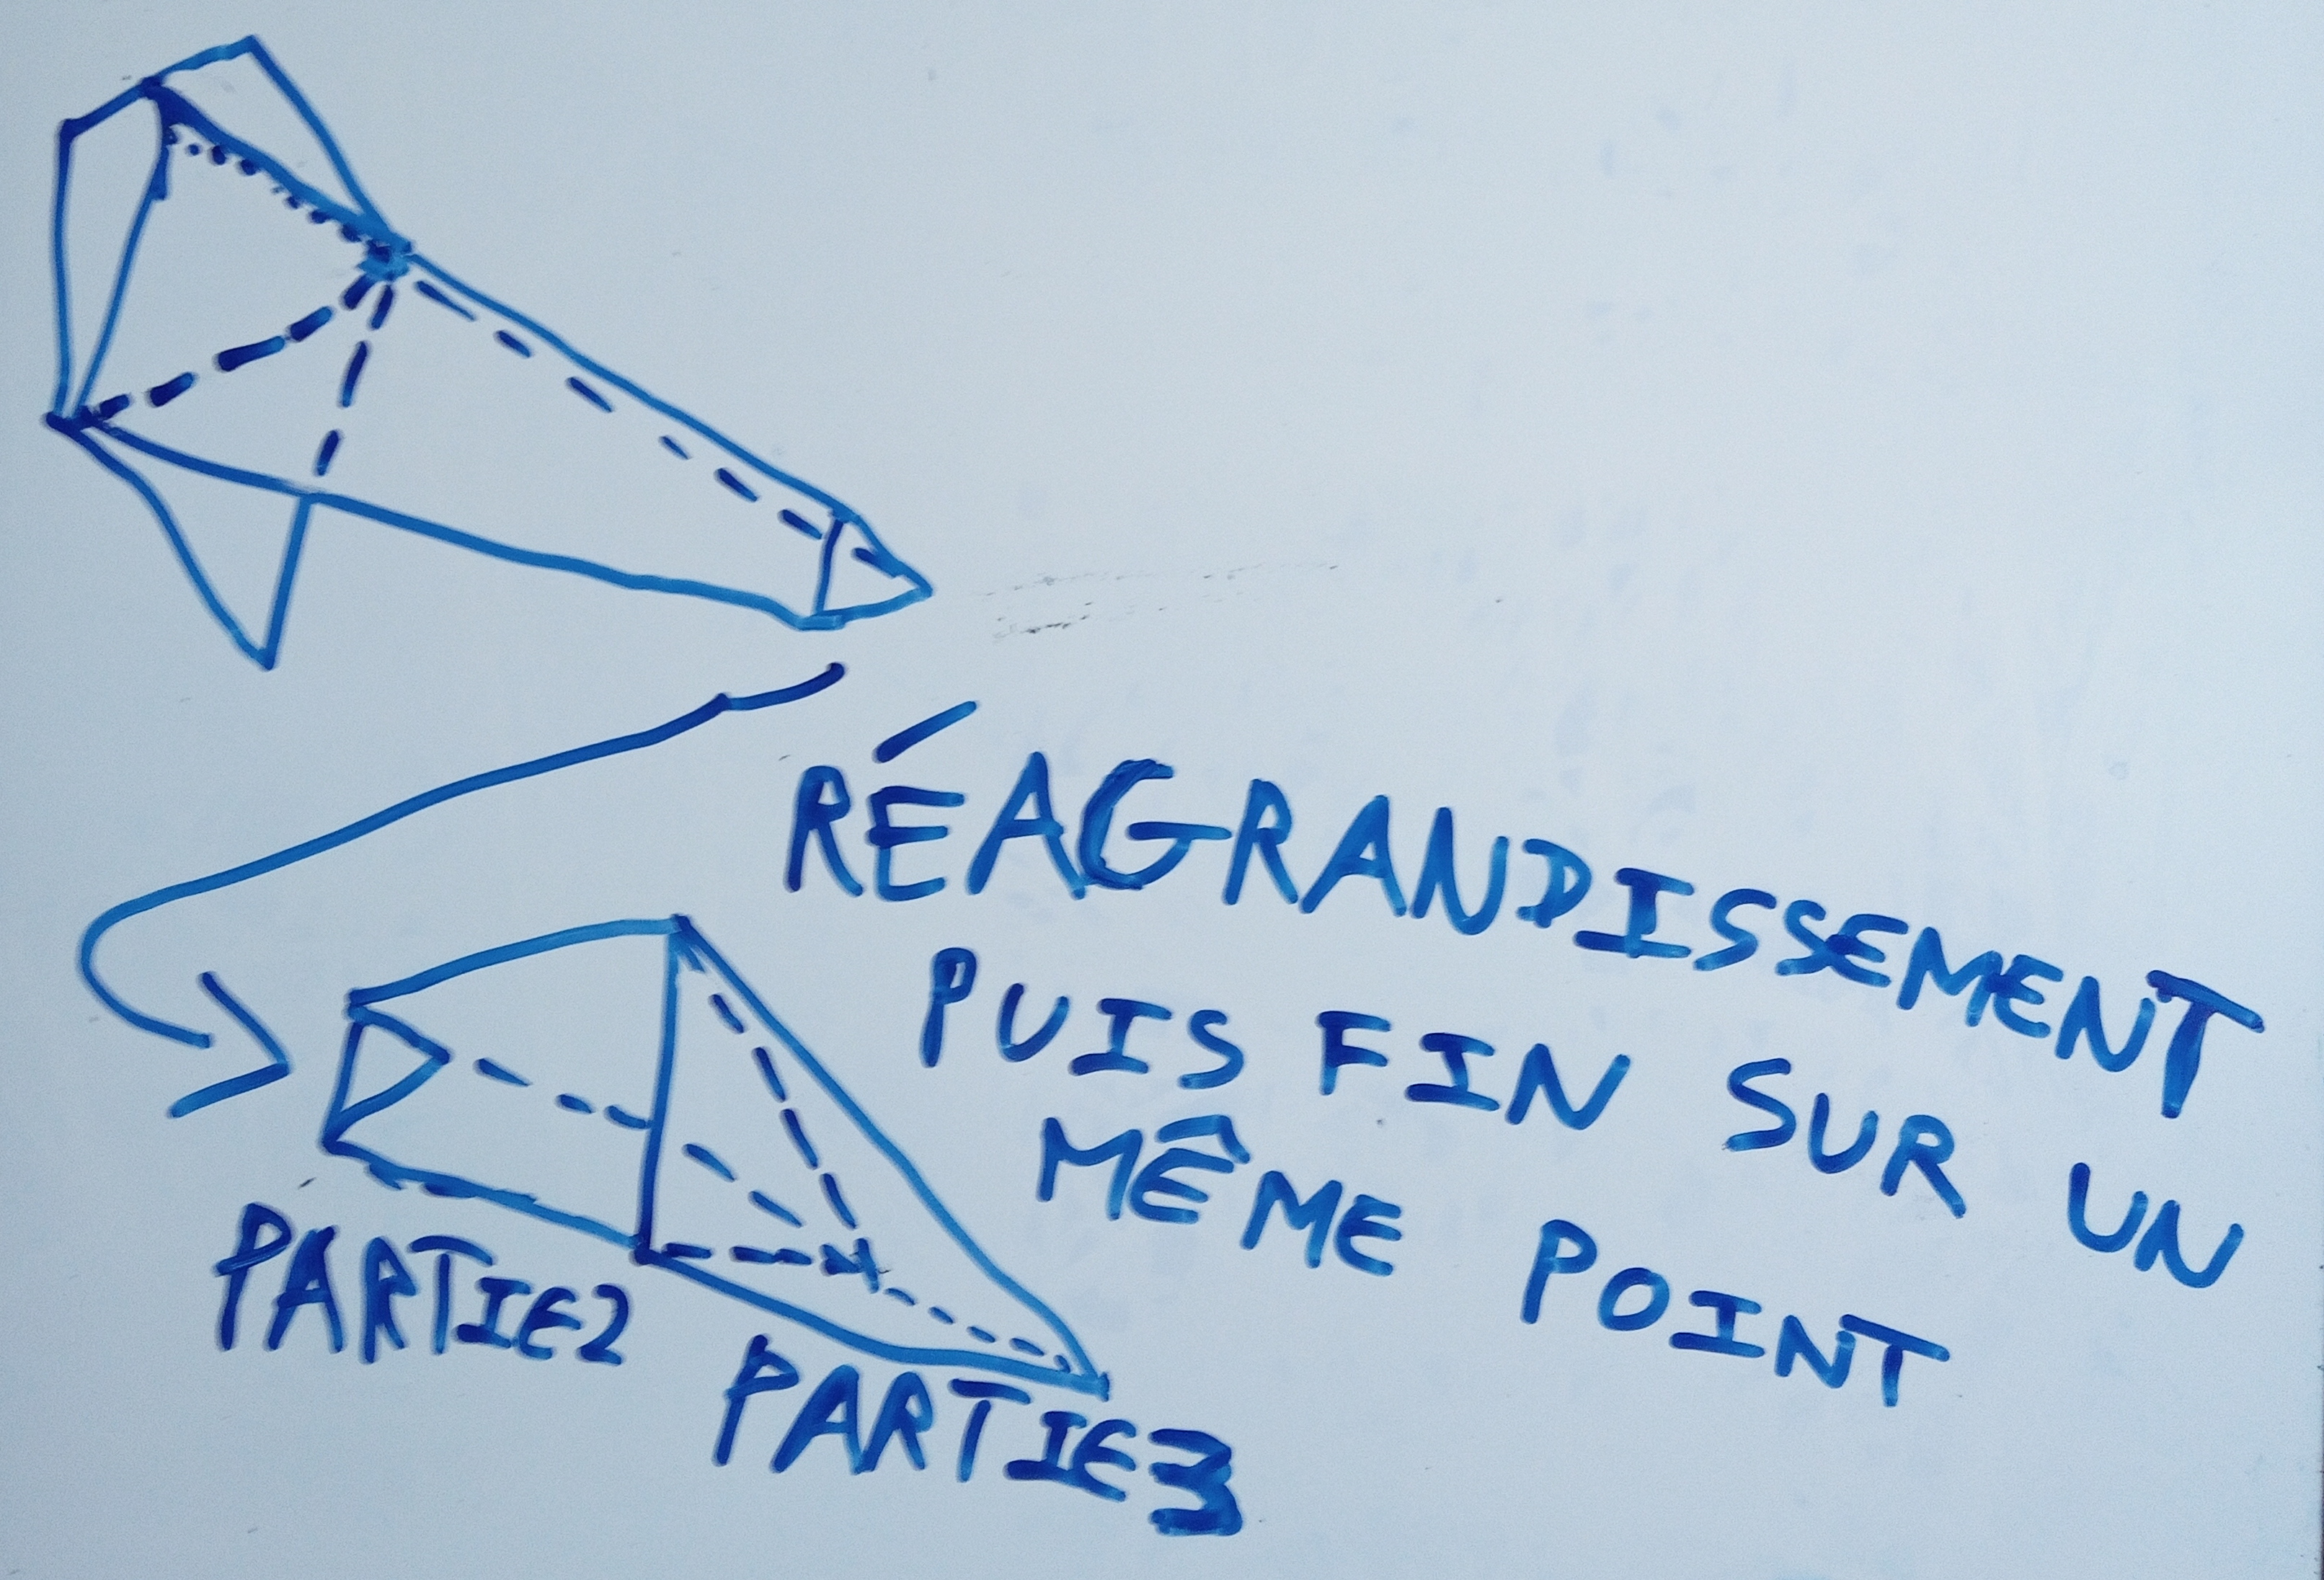 RÉAGRANDISSEMENT
PUIS FIN SUR UN
MÊME POINT
PARTIE2
PARTIE3